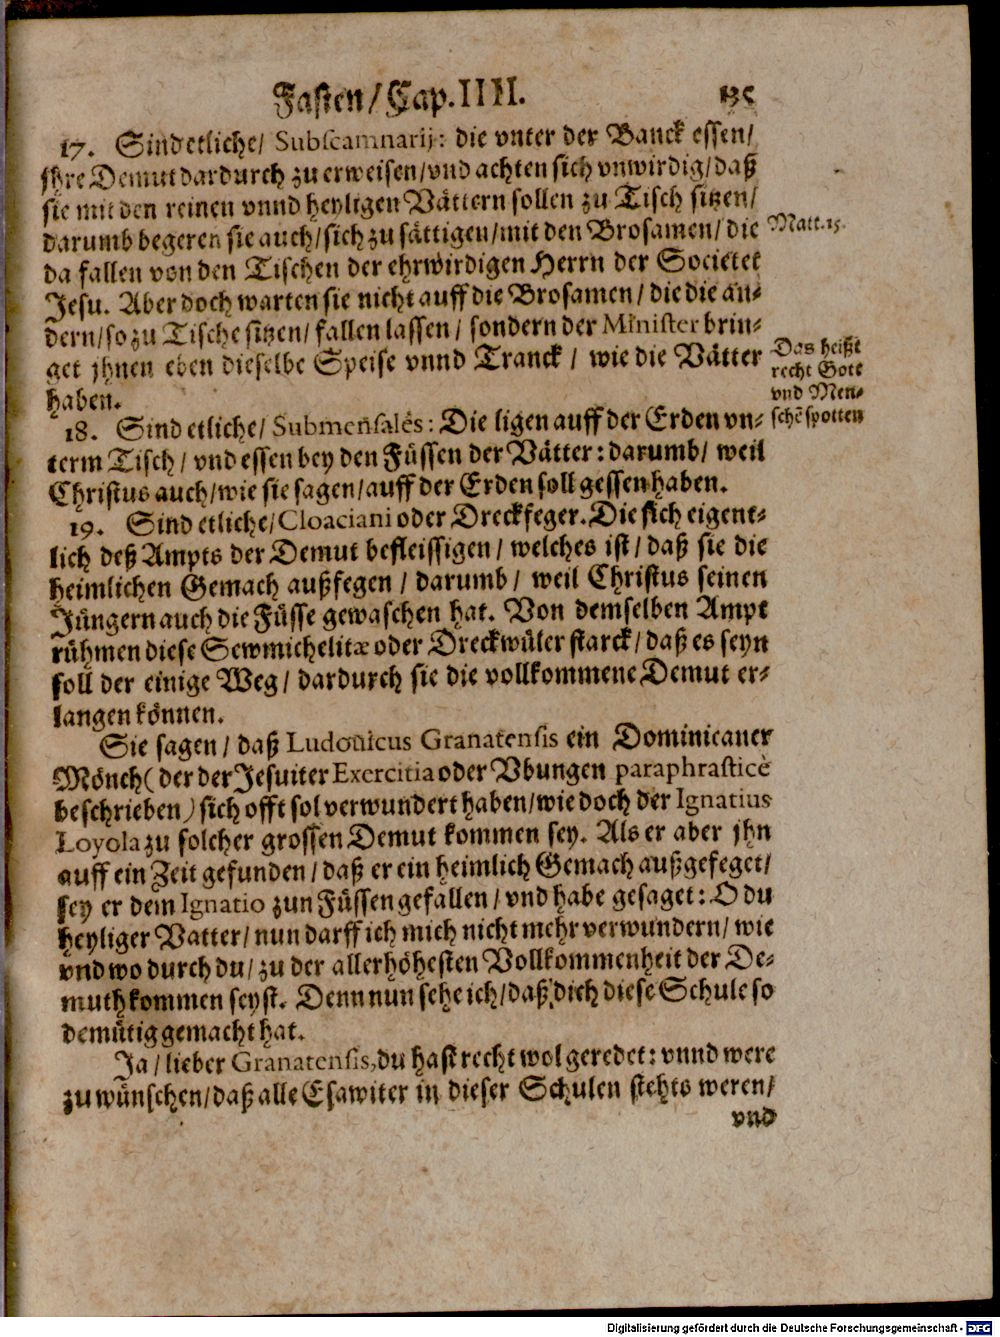 Fasten/ Cap. IIII. 135
17. Sind etliche/ Subscamnarij: die vnter der Banck essen/
jhre Demut dardurch zu erweisen/ vnd achten sich vnwirdig/ daß
sie mit den reinen vnnd heyligen Vättern sollen zu Tisch sitzen/
darumb begeren sie auch/ sich zu sättigen/ mit den Brosamen/ die
Matt. 15.
da fallen von den Tischen der ehrwirdigen Herrn der Societet
Jesu. Aber doch warten sie nicht auff die Brosamen/ die die an-
dern/ so zu Tische sitzen/ fallen lassen/ sondern der Minister brin-
get jhnen eben dieselbe Speise vnnd Tranck/ wie die Vätter
haben.
Das heißt
recht Gott
vnd Men-
schē spotten
18. Sind etliche/ Submensales: Die ligen auff der Erden vn-
term Tisch/ vnd essen bey den Füssen der Vätter: darumb/ weil
Christus auch/ wie sie sagen/ auff der Erden soll gessen haben.
19. Sind etliche/ Cloaciani oder Dreckfeger. Die sich eigent-
lich deß Ampts der Demut befleissigen/ welches ist/ daß sie die
heimlichen Gemach außfegen/ darumb/ weil Christus seinen
Jüngern auch die Füsse gewaschen hat. Von demselben Ampt
rühmen diese Sewmichelitæ oder Dreckwüler starck/ daß es seyn
soll der einige Weg/ dardurch sie die vollkommene Demut er-
langen können.
Sie sagen/ daß Ludouicus Granatensis ein Dominicaner
Mönch (der der Jesuiter Exercitia oder Vbungen paraphrasticè
beschrieben) sich offt sol verwundert haben/ wie doch der Ignatius
Loyola zu solcher grossen Demut kommen sey. Als er aber jhn
auff ein Zeit gefunden/ daß er ein heimlich Gemach außgefeget/
sey er dem Ignatio zun Füssen gefallen/ vnd habe gesaget: O du
heyliger Vatter/ nun darff ich mich nicht mehr verwundern/ wie
vnd wo durch du/ zu der allerhöhesten Vollkommenheit der De-
muth kommen seyst. Denn nun sehe ich/ daß dich diese Schule so
demütig gemacht hat.
Ja/ lieber Granatensis, du hast recht wol geredet: vnnd were
zu wünschen/ daß alle Esawiter in dieser Schulen stehts weren/
vnd
Digitalisierung gefördert durch die Deutsche Forschungsgemeinschaft - DFG